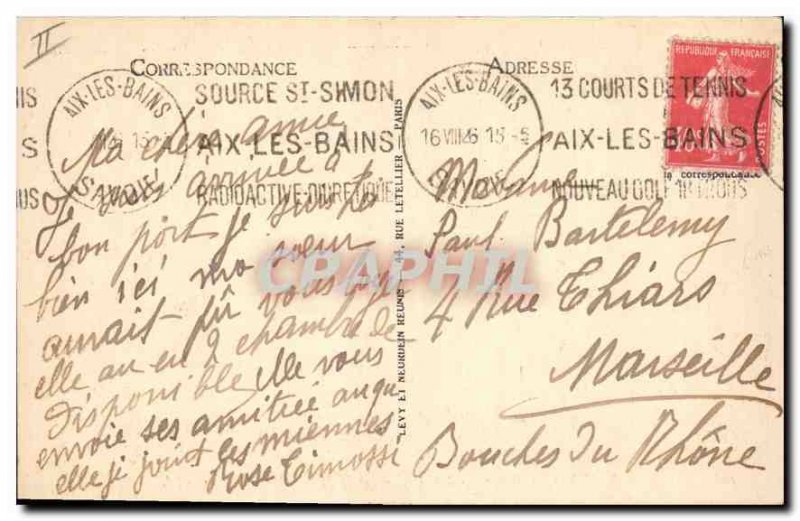 II
CORRESPONDANCE
ADRESSE
AIX-LES-BAINS
SAVOIE
SOURCE ST-SIMON
AIX-LES-BAINS
RADIOACTIVE-DIURETIQUE
AIX-LES-BAINS
16 VIII 15
13 COURTS DE TENNIS
AIX-LES-BAINS
NOUVEAU GOLF 18 TROUS
REPUBLIQUE FRANÇAISE
POSTES
correspondance
Ma chère amie
Je suis arrivée à
bon port je suis
bien ici ma sœur
aurait pû vous
elle au en 2 chambre de
disponible elle vous
envoie ses amitiée
elle je joint les miennes
Rose Timossi
LEVY ET NEURDEIN REUNIS 44, RUE LETELLIER, PARIS
Madame
Paul Bartelemy
4 Rue Thiars
Marseille
Bouches Du Rhône
CPARAMA